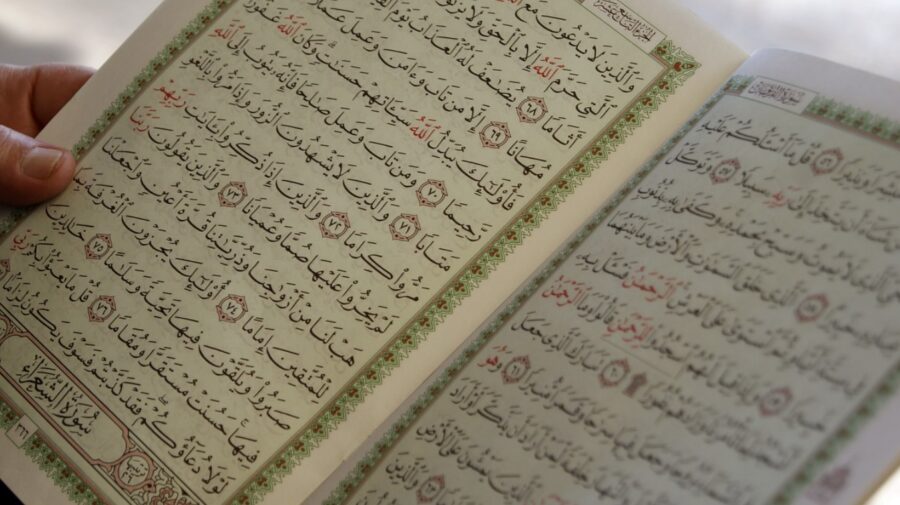 سُورَةُ الفُرْقَانِ
مُبَشِّرًا وَنَذِيرًا ٥٦ قُلْ مَآ أَسْـَٔلُكُمْ عَلَيْهِ
شَآءَ أَن يَتَّخِذَ إِلَىٰ رَبِّهِۦ سَبِيلًا ٥٧ وَتَوَكَّلْ
ٱلَّذِى لَا يَمُوتُ وَسَبِّحْ بِحَمْدِهِۦ وَكَفَىٰ بِهِۦ بِذُنُوبِ
خَبِيرًا ٥٨ ٱلَّذِى خَلَقَ ٱلسَّمَٰوَٰتِ وَٱلْأَرْضَ وَمَا بَيْنَهُمَا
فِى سِتَّةِ أَيَّامٍ ثُمَّ ٱسْتَوَىٰ عَلَى ٱلْعَرْشِ ٱلرَّحْمَٰنُ فَسْـَٔلْ بِهِۦ
خَبِيرًا ٥٩ وَإِذَا قِيلَ لَهُمُ ٱسْجُدُوا۟ لِلرَّحْمَٰنِ قَالُوا۟ وَمَا ٱلرَّحْمَٰنُ
أَنَسْجُدُ لِمَا تَأْمُرُنَا وَزَادَهُمْ نُفُورًا ۩ ٦٠ تَبَارَكَ ٱلَّذِى جَعَلَ
فِى ٱلسَّمَآءِ بُرُوجًا وَجَعَلَ فِيهَا سِرَٰجًا وَقَمَرًا مُّنِيرًا ٦١ وَهُوَ
ٱلَّذِى جَعَلَ ٱلَّيْلَ وَٱلنَّهَارَ خِلْفَةً لِّمَنْ أَرَادَ أَن يَذَّكَّرَ أَوْ أَرَادَ
ٱلَّذِينَ يَمْشُونَ عَلَى ٱلْأَرْضِ
وَٱلَّذِينَ
الجُزْءُ التَّاسِعَ عَشَرَ
وَٱلَّذِينَ لَا يَدْعُونَ مَعَ ٱللَّهِ
ٱلَّتِى حَرَّمَ ٱللَّهُ إِلَّا بِٱلْحَقِّ وَلَا يَزْنُونَ
أَثَامًا ٦٨ يُضَٰعَفْ لَهُ ٱلْعَذَابُ يَوْمَ
مُهَانًا ٦٩ إِلَّا مَن تَابَ وَءَامَنَ وَعَمِلَ عَمَلًا
فَأُو۟لَٰٓئِكَ يُبَدِّلُ ٱللَّهُ سَيِّـَٔاتِهِمْ حَسَنَٰتٍ وَكَانَ ٱللَّهُ غَفُورًا
رَّحِيمًا ٧٠ وَمَن تَابَ وَعَمِلَ صَٰلِحًا فَإِنَّهُۥ يَتُوبُ إِلَى ٱللَّهِ
مَتَابًا ٧١ وَٱلَّذِينَ لَا يَشْهَدُونَ ٱلزُّورَ وَإِذَا مَرُّوا۟ بِٱللَّغْوِ
مَرُّوا۟ كِرَامًا ٧٢ وَٱلَّذِينَ إِذَا ذُكِّرُوا۟ بِـَٔايَٰتِ رَبِّهِمْ
لَمْ يَخِرُّوا۟ عَلَيْهَا صُمًّا وَعُمْيَانًا ٧٣ وَٱلَّذِينَ يَقُولُونَ رَبَّنَا
هَبْ لَنَا مِنْ أَزْوَٰجِنَا وَذُرِّيَّٰتِنَا قُرَّةَ أَعْيُنٍ وَٱجْعَلْنَا
لِلْمُتَّقِينَ إِمَامًا ٧٤ أُو۟لَٰٓئِكَ يُجْزَوْنَ ٱلْغُرْفَةَ بِمَا
صَبَرُوا۟ وَيُلَقَّوْنَ فِيهَا تَحِيَّةً وَسَلَٰمًا ٧٥ خَٰلِدِينَ
فِيهَا حَسُنَتْ مُسْتَقَرًّا وَمُقَامًا ٧٦ قُلْ مَا يَعْبَؤُا۟ بِكُمْ رَبِّى
لَوْلَا دُعَآؤُكُمْ فَقَدْ كَذَّبْتُمْ فَسَوْفَ يَكُونُ لِزَامًا
سُورَةُ الشُّعَرَاءِ
٣٦٦